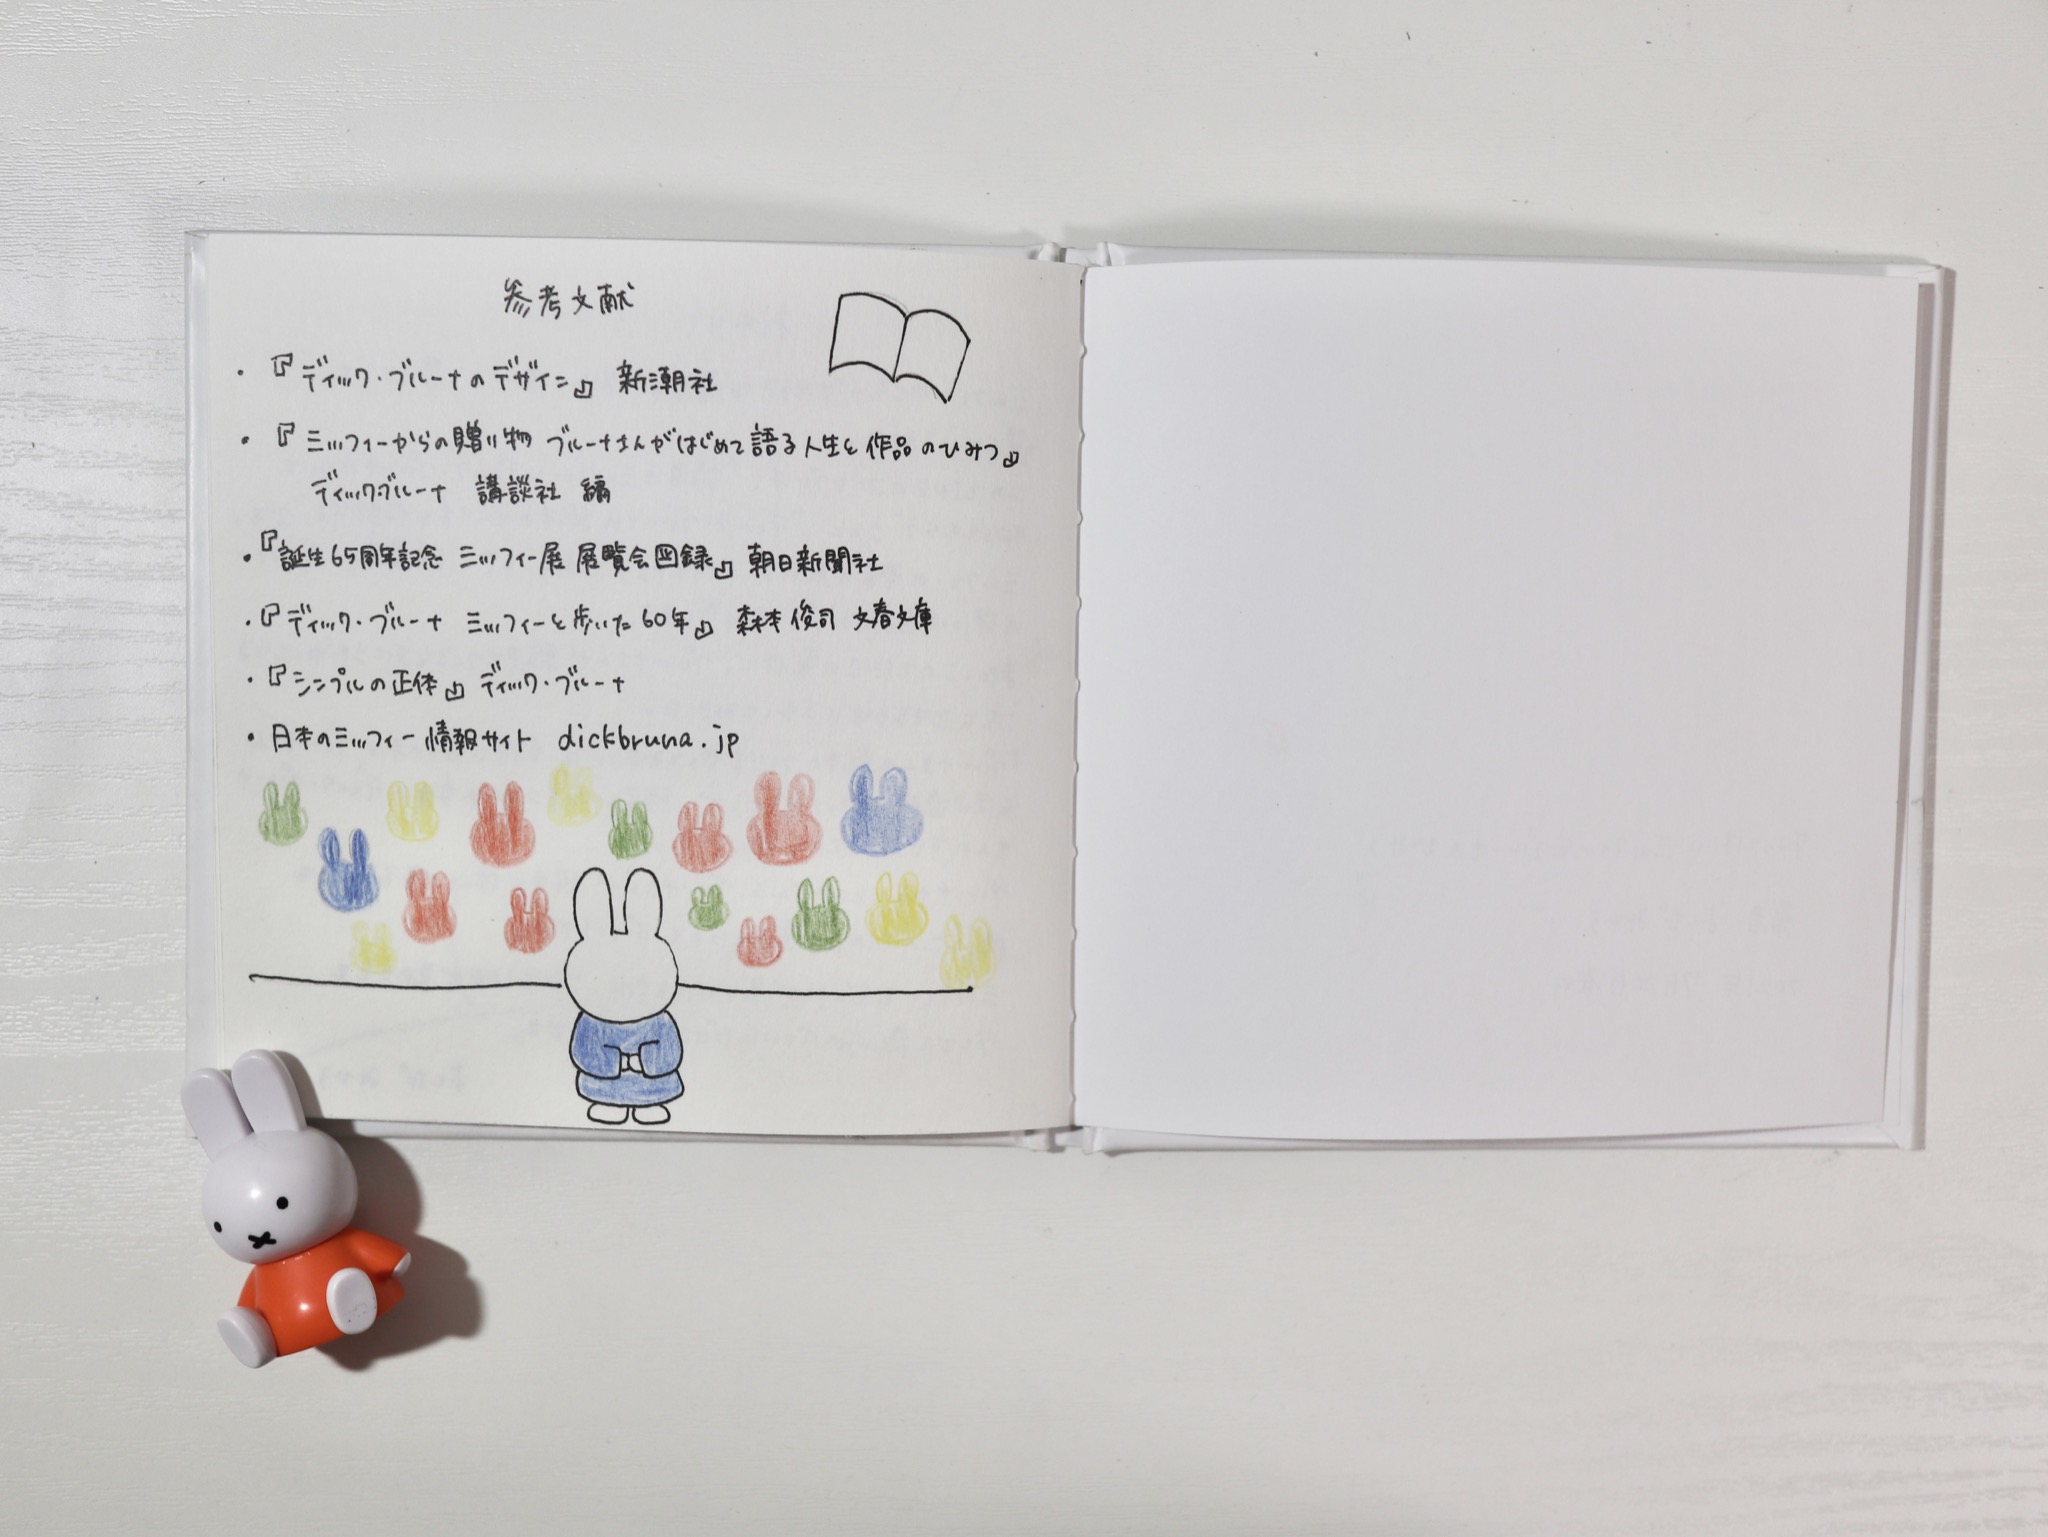 参考文献
・『ディック・ブルーナのデザイン』 新潮社
・『ミッフィーからの贈り物 ブルーナさんがはじめて語る人生と作品のひみつ』
ディックブルーナ 講談社 編
・『誕生65周年記念 ミッフィー展 展覧会図録』 朝日新聞社
・『ディック・ブルーナ ミッフィーと歩いた60年』 森本俊司 文春文庫
・『シンプルの正体』 ディック・ブルーナ
・日本のミッフィー情報サイト dickbruna.jp